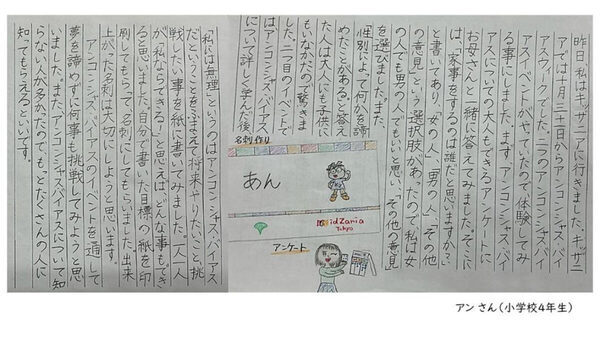 昨日私はキッザニアに行きました。キッザニ
アでは十月三十日からアンコンシャスバイ
アスウィークでした。二つのアンコンシャスバイ
アスイベントがやっていたので体験してみ
る事にしました。まず、アンコンシャスバイ
アスについての大人もできるアンケートに
お母さんと一緒に答えてみました。そこに
は、「家事をするのは誰だと思いますか?」
と書いてあり、「女の人」、「男の人」、「その他
の意見」という選択肢があったので私は女
の人でも男の人でもいいと思い、「その他の意見」
を選びました。また、
「性別によって何かを諦
めたことがある」と答え
た人は大人にも子供に
もいなかたので驚きま
した。二つ目のイベントで
アンコンシャスバイアス
について詳しく学んだ後、
名刺作り
あん
KidZania
Tokyo
アンケート
「私には無理」というのはアンコンシャスバイアス
だということをふまえて将来やりたいこと、挑
戦したい事を紙に書いてみました。一人一人
が「私ならできる!」と思えばどんな事もでき
ると思いました。自分で書いた目標の紙を印
刷してもらって、名刺にしてもらいました。出来
上がった名刺は大切にしようと思います。
アンコンシャスバイアスのイベントを通して
夢を諦めずに何事も挑戦してみようと思
いました。また、アンコンシャスバイアスについて知
らない人が多かったので、もっとたくさんの人に
知ってもらえるといいです。
アン さん（小学校4年生）